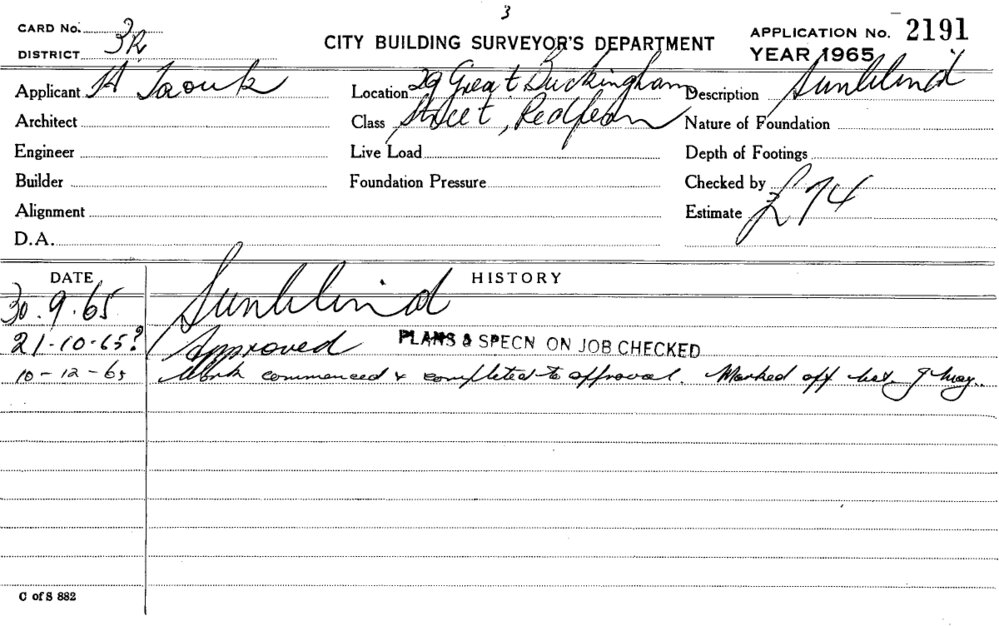 3
CARD No.
DISTRICT 3R
CITY BUILDING SURVEYOR'S DEPARTMENT
APPLICATION No. 2191
YEAR 1965
Applicant H Taouk
Location 29 Great Buckingham
Description Sunblind
Architect
Class Street, Redfern
Nature of Foundation
Engineer
Live Load
Depth of Footings
Builder
Foundation Pressure
Checked by
Alignment
Estimate £74
D.A.
DATE
HISTORY
30.9.65 Sunblind
21-10-65 Approved PLANS & SPECN ON JOB CHECKED
10-12-65 Work commenced & completed to approval. Marked off
C of S 882